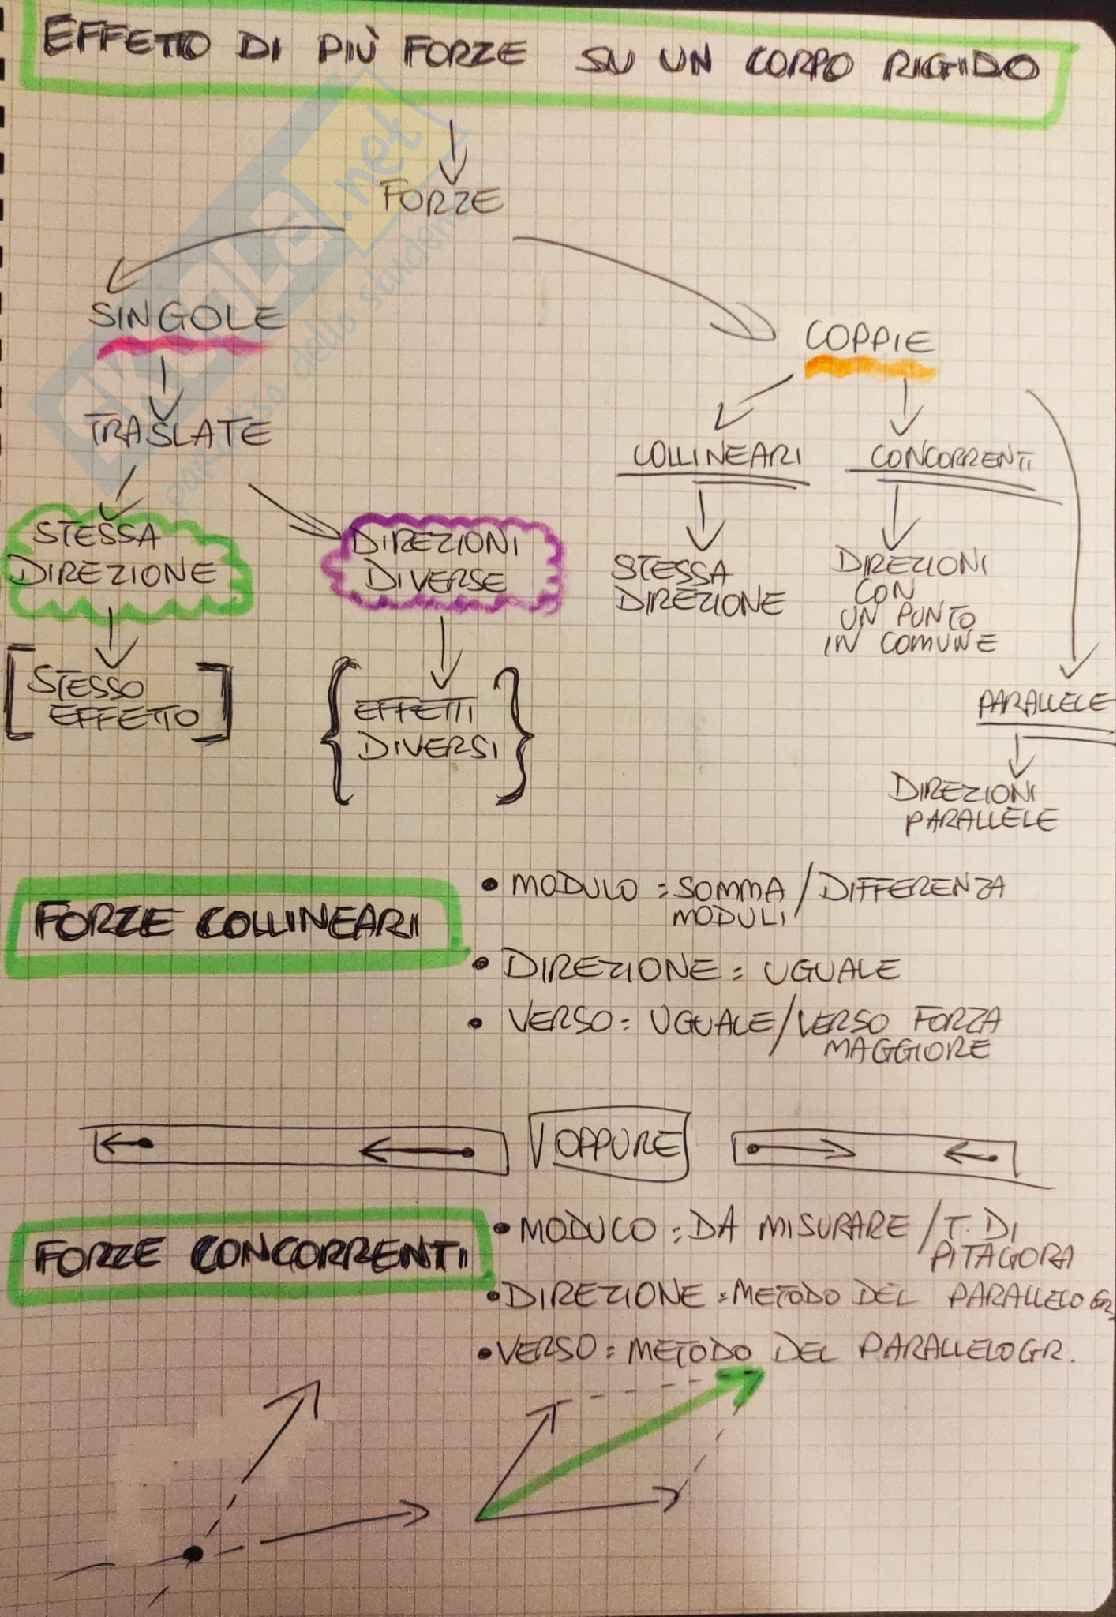 EFFETTO DI PIÙ FORZE SU UN CORPO RIGIDO
FORZE
SINGOLE
COPPIE
TRASLATE
COLLINEARI
CONCORRENTI
STESSA
DIREZIONE
DIREZIONI
DIVERSE
STESSA
DIREZIONE
DIREZIONI
CON
UN PUNTO
IN COMUNE
STESSO
EFFETTO
EFFETTI
DIVERSI
PARALLELE
DIREZIONI
PARALLELE
FORZE COLLINEARI
• MODULO = SOMMA / DIFFERENZA
MODULI
• DIREZIONE = UGUALE
• VERSO = UGUALE / VERSO FORZA
MAGGIORE
OPPURE
FORZE CONCORRENTI
• MODULO = DA MISURARE / T. DI
PITAGORA
• DIREZIONE = METODO DEL PARALLELOGR.
• VERSO = METODO DEL PARALLELOGR.
SKUOLA.net